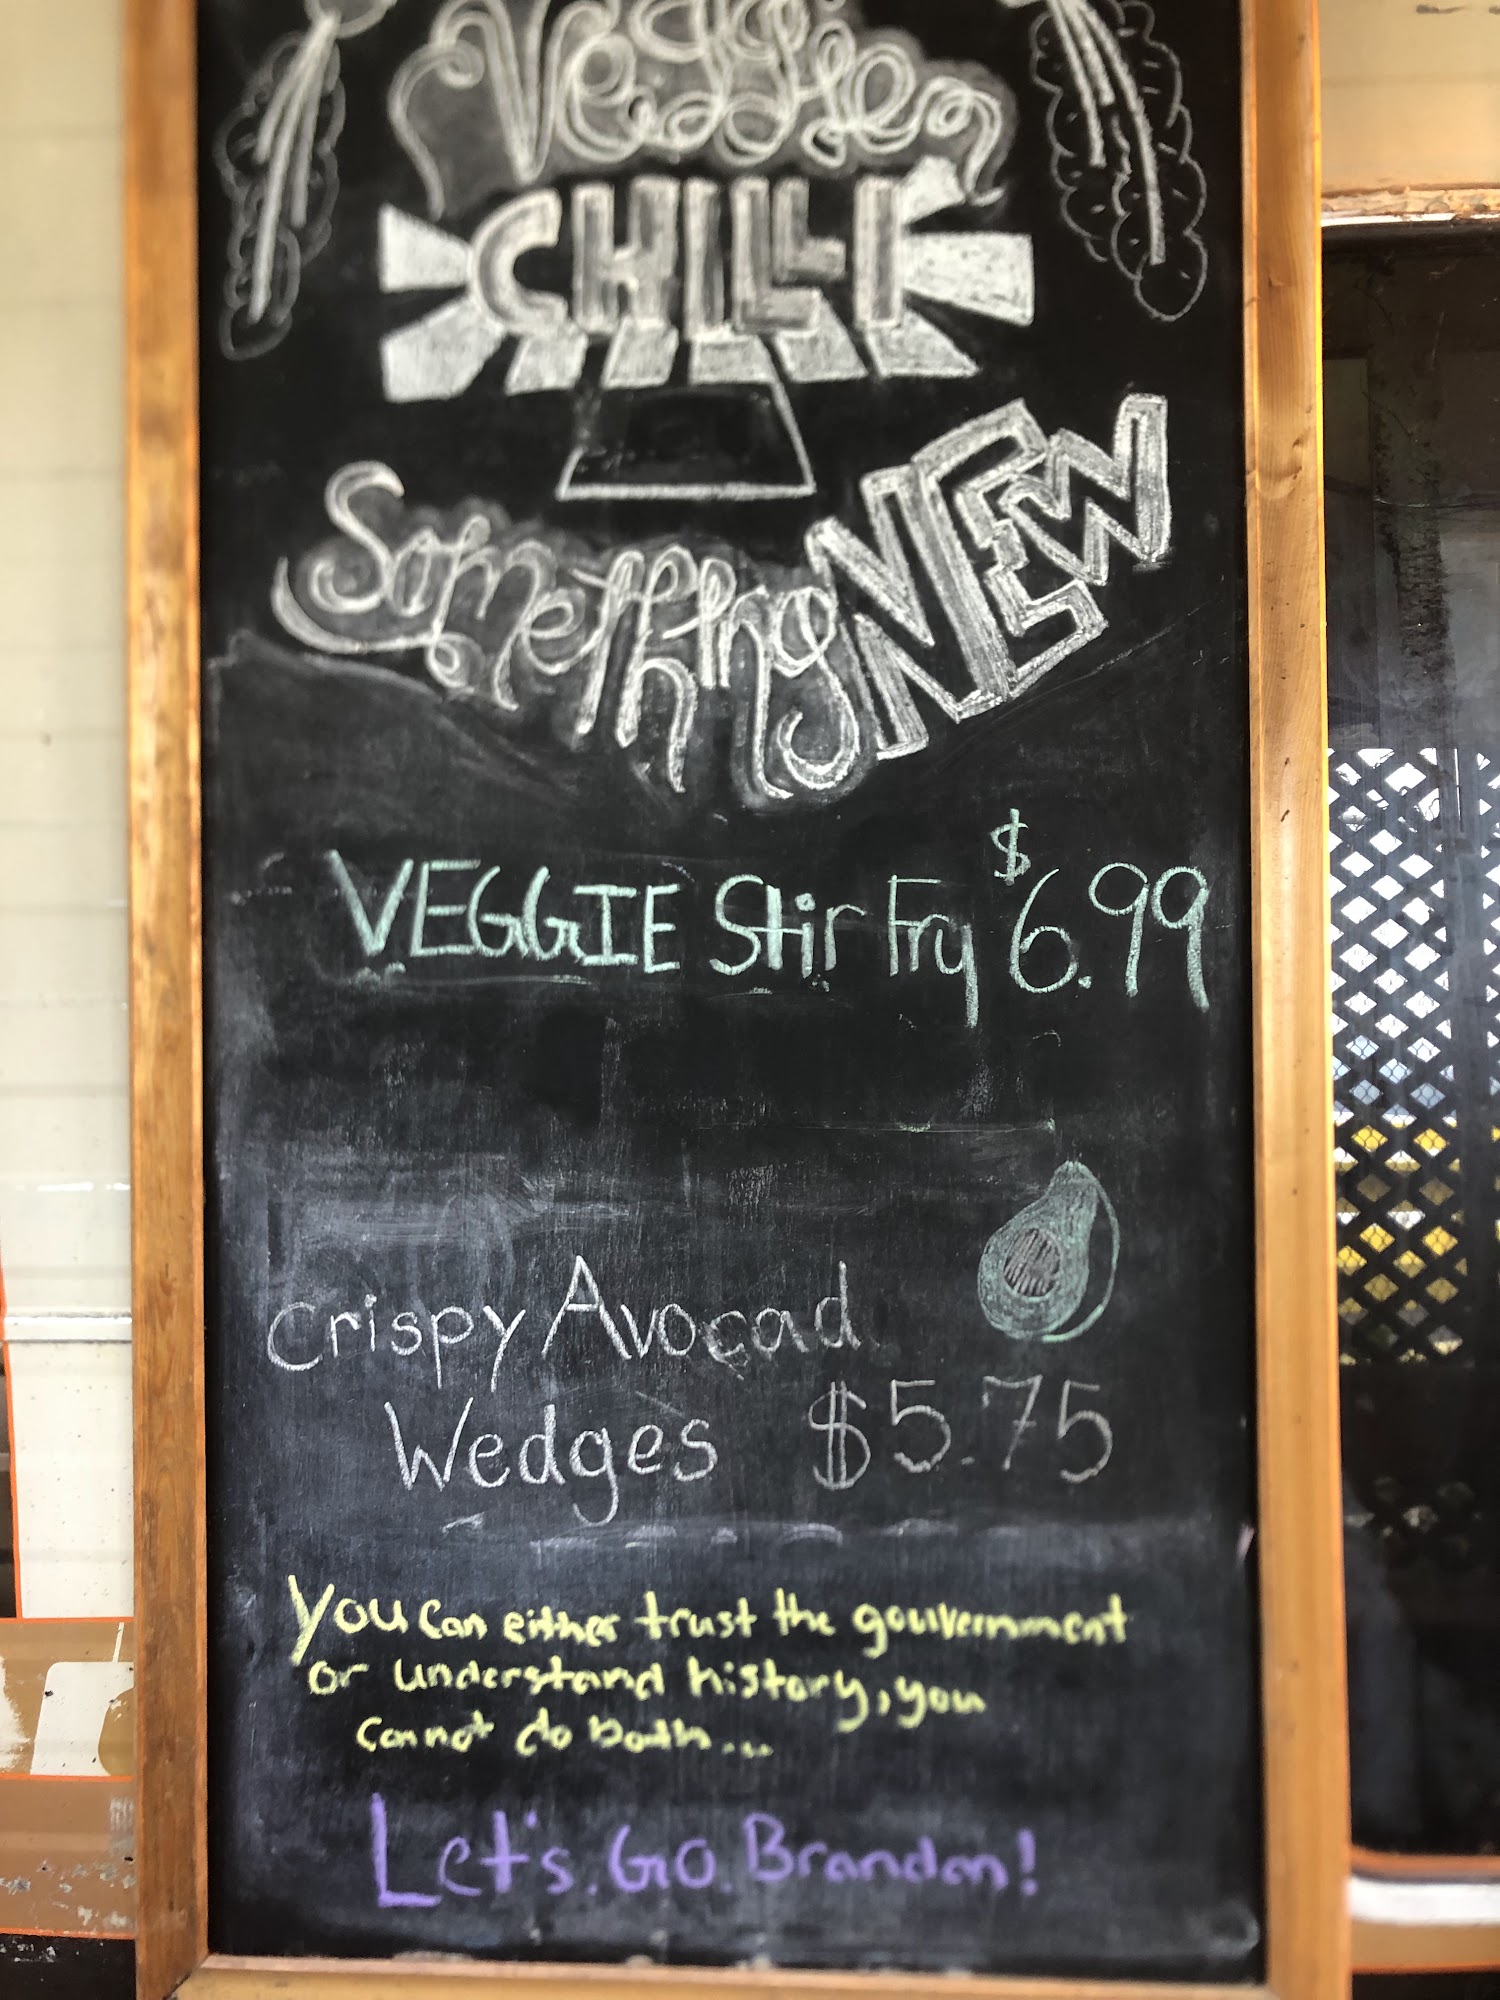 Veggie
CHILLI
Something NEW
VEGGIE Stir Fry $6.99
Crispy Avocad
Wedges $5.75
You can either trust the gouvernment
or understand history, you
cannot do both...
Let's. GO. Brandon!